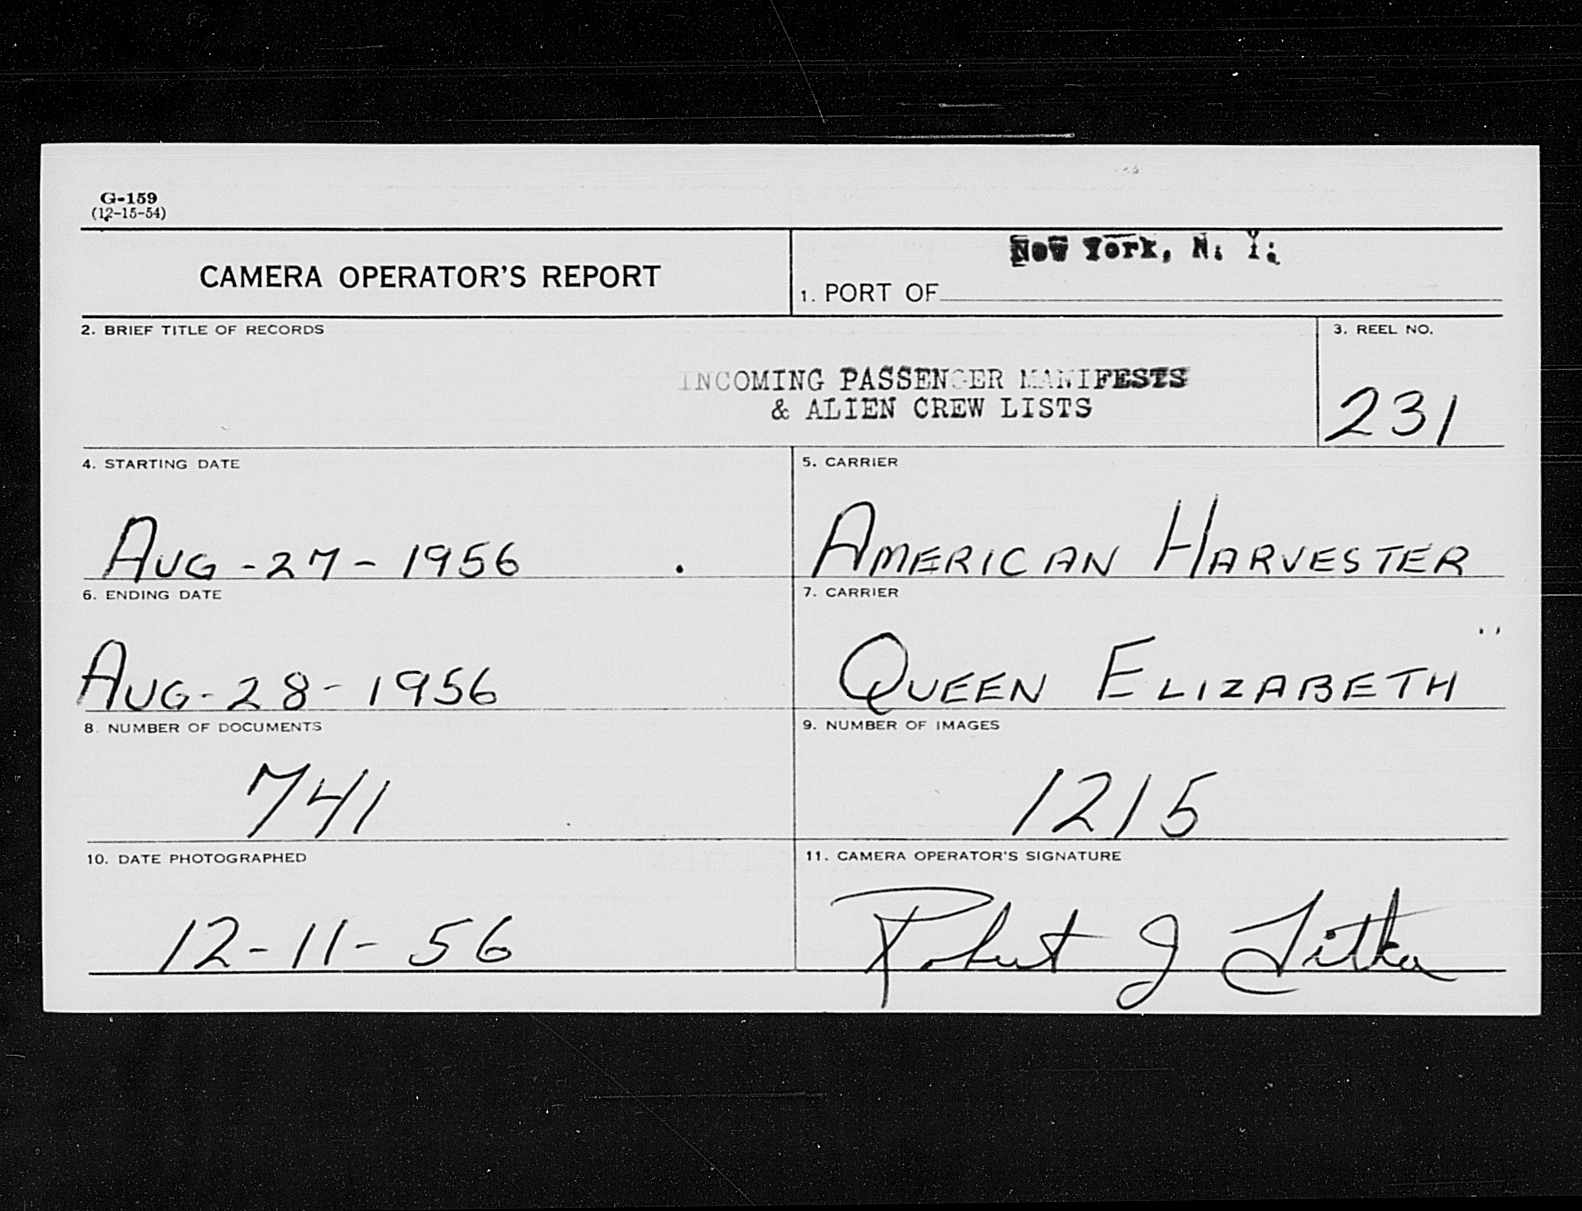 G-159
(12-15-54)
CAMERA OPERATOR'S REPORT
New York, N. Y.
1. PORT OF
2. BRIEF TITLE OF RECORDS
INCOMING PASSENGER MANIFESTS
& ALIEN CREW LISTS
3. REEL NO.
231
4. STARTING DATE
AUG-27-1956
5. CARRIER
AMERICAN HARVESTER
6. ENDING DATE
AUG-28-1956
7. CARRIER
QUEEN ELIZABETH"
8. NUMBER OF DOCUMENTS
741
9. NUMBER OF IMAGES
1215
10. DATE PHOTOGRAPHED
12-11-56
11. CAMERA OPERATOR'S SIGNATURE
Robert J